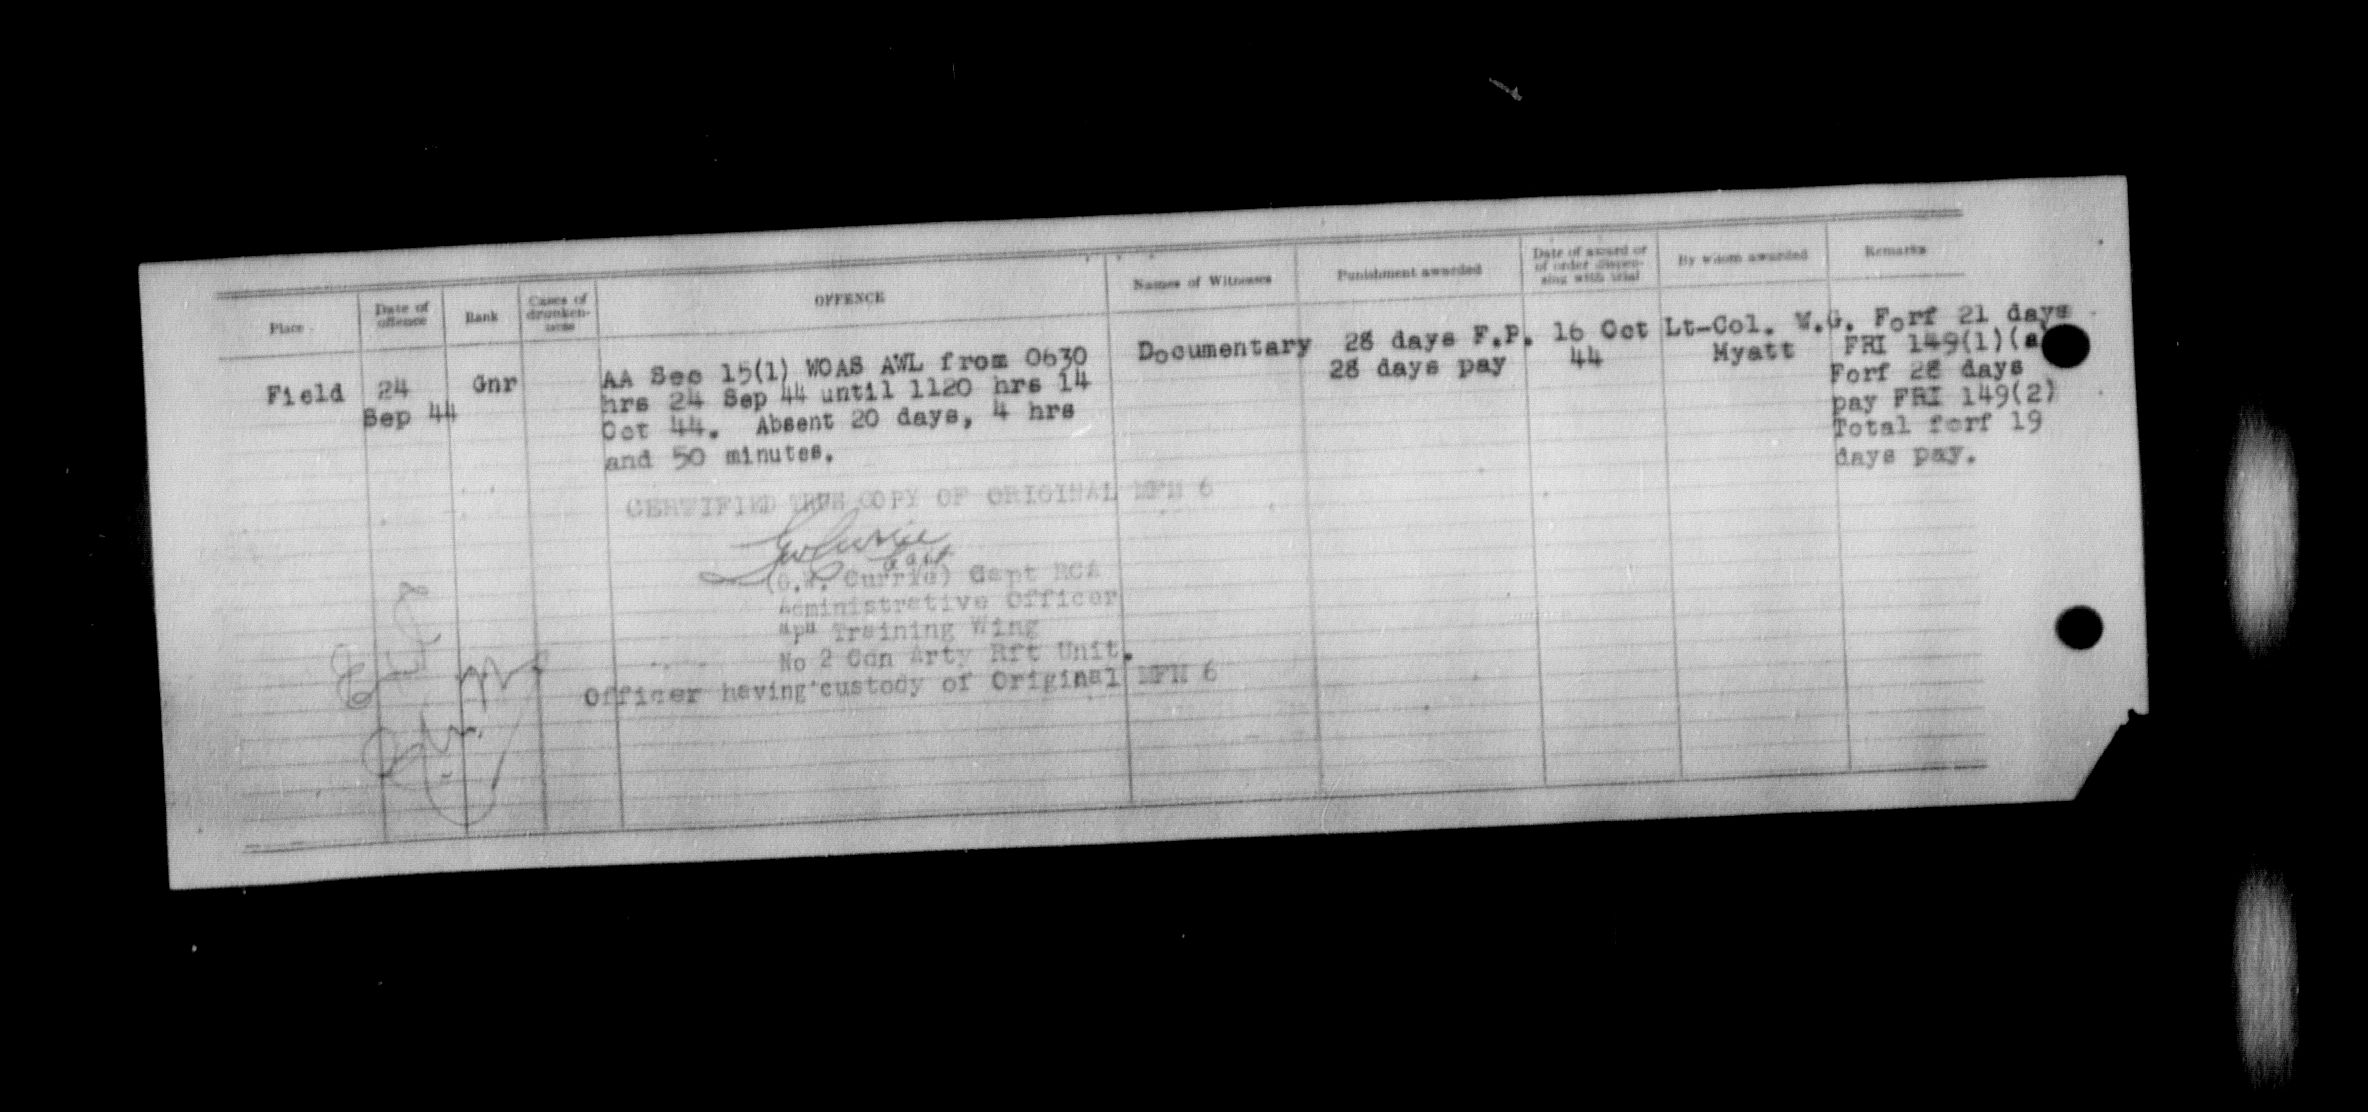 Place
Date of offence
Rank
Cases of drunken-ness
OFFENCE
Names of Witnesses
Punishment awarded
Date of award or of order dispen-sing with trial
By whom awarded
Remarks
Field
24
Sep 44
Gnr
AA Sec 15(1) WOAS AWL from 0630
hrs 24 Sep 44 until 1120 hrs 14
Oct 44. Absent 20 days, 4 hrs
and 50 minutes.
Documentary
28 days F.P.
28 days pay
16 Oct
44
Lt-Col. W.G.
Myatt
Forf 21 days
FRI 149(1)(a
Forf 28 days
pay FRI 149(2)
Total forf 19
days pay.
CERTIFIED TRUE COPY OF ORIGINAL MFM 6
Capt
(G.W. Currie) Capt RCA
Administrative Officer
"P" Training Wing
No 2 Cdn Arty Rft Unit.
Officer having custody of Original MFM 6